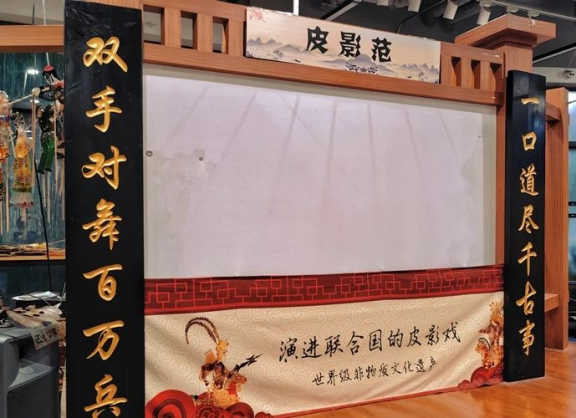 皮影范
一口道尽千古事
双手对舞百万兵
演进联合国的皮影戏
世界级非物质文化遗产